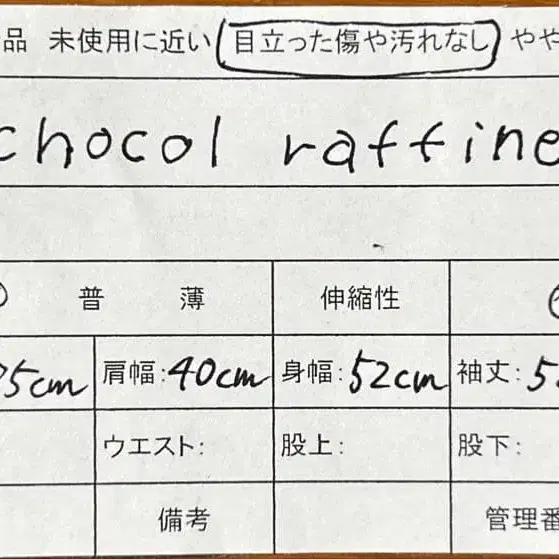 品 未使用に近い 目立った傷や汚れなし やや
chocol raffine
普 薄 伸縮性
5cm 肩幅:40cm 身幅:52cm 袖丈:5
ウエスト: 股上: 股下:
備考 管理番